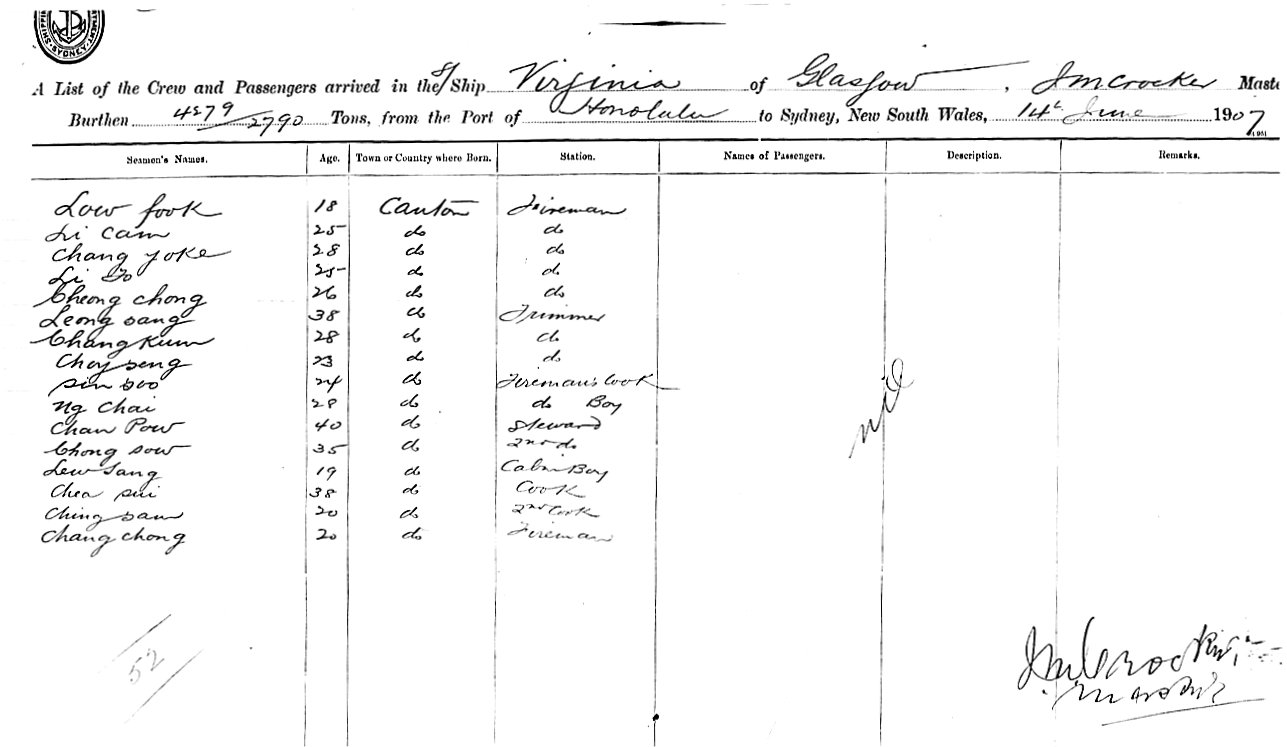 A List of the Crew and Passengers arrived in the S/ Ship Virginia of Glasgow, J M Crocker Maste
Burthen 4579/2790 Tons, from the Port of Honolulu to Sydney, New South Wales, 14th June 1907
Seamen's Names. Age. Town or Country where Born. Station. Names of Passengers. Description. Remarks.
Low fook 18 Canton Fireman
Li Cam 25 do do
Chang yoke 28 do do
Li 25 do do
Cheong chong 26 do do
Leong sang 38 do Trimmer
Chang Kum 28 do do
Choy seng 23 do do
Sin soo 24 do Fireman's Cook
Ng Chai 28 do do Boy
Chan Pow 40 do Steward
Chong sow 35 do 2nd do
Lew Sang 19 do Cabin Boy
Chea sui 38 do Cook
Ching sam 20 do 2nd Cook
Chang chong 20 do Fireman
nil
52
J M Crocker
Master